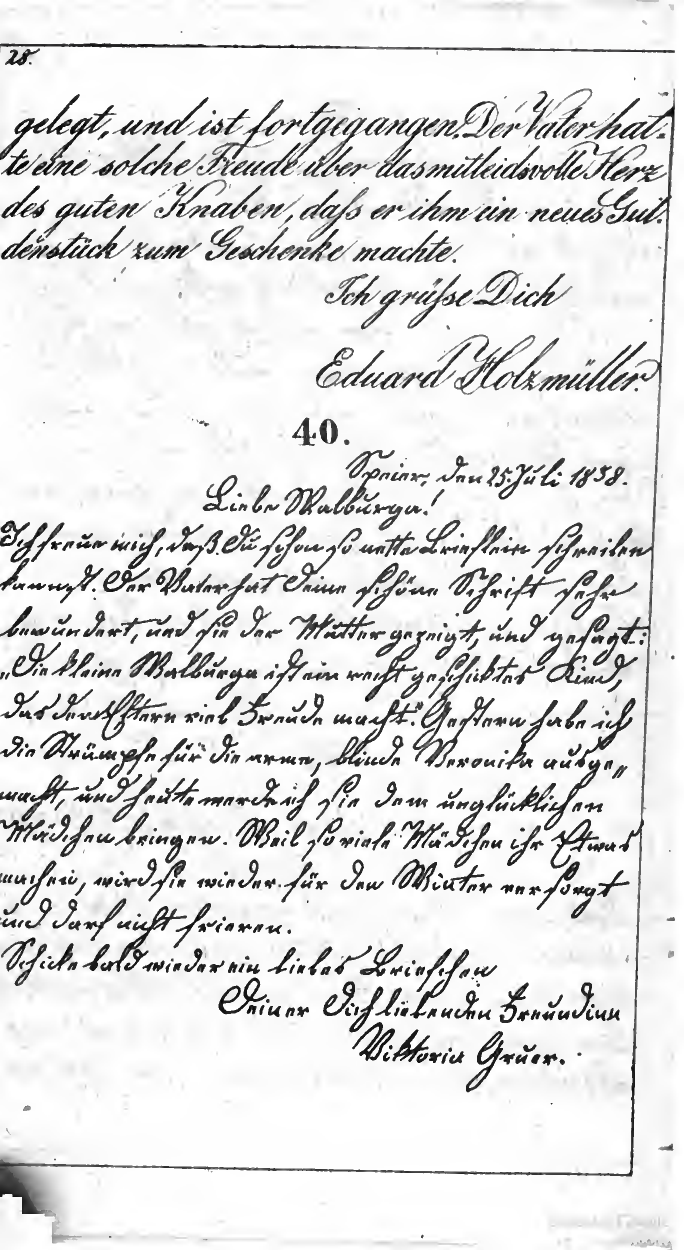 28.
gelegt, und ist fortgegangen. Der Vater hat-
te eine solche Freude über das mitleidsvolle Herz
des guten Knaben, daß er ihm ein neues Gul-
denstück zum Geschenke machte.
Ich grüße Dich
Eduard Holzmüller.
40.
Speier, den 25. Juli 1838.
Liebe Walburga!
Ich freue mich, daß Du schon so nette Brieflein schreiben
kannst. Der Vater hat Deine schöne Schrift sehr
bewundert, und sie der Mutter gezeigt, und gesagt:
„Die kleine Walburga ist ein recht geschicktes Kind,
das den Eltern viel Freude macht.“ Gestern habe ich
die Strümpfe für die arme, blinde Veronika ausge„
macht, und heute werde ich sie dem unglücklichen
Mädchen bringen. Weil so viele Mädchen ihr Etwas
machen, wird sie wieder für den Winter versorgt
und darf nicht frieren.
Schicke bald wieder ein liebes Briefchen
Deiner Dich liebenden Freundinn
Viktoria Gruer.